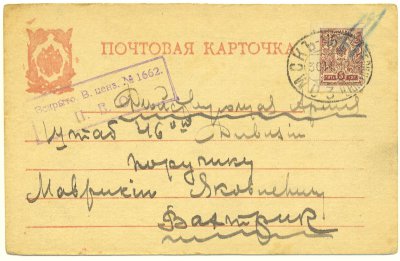 ПОЧТОВАЯ КАРТОЧКА
Вскрыто В. ценз. № 1662.
Действующая Армія
Штаб 46ой Дивизіи
поручику
Маврикію Яковлевичу
Бахтрик